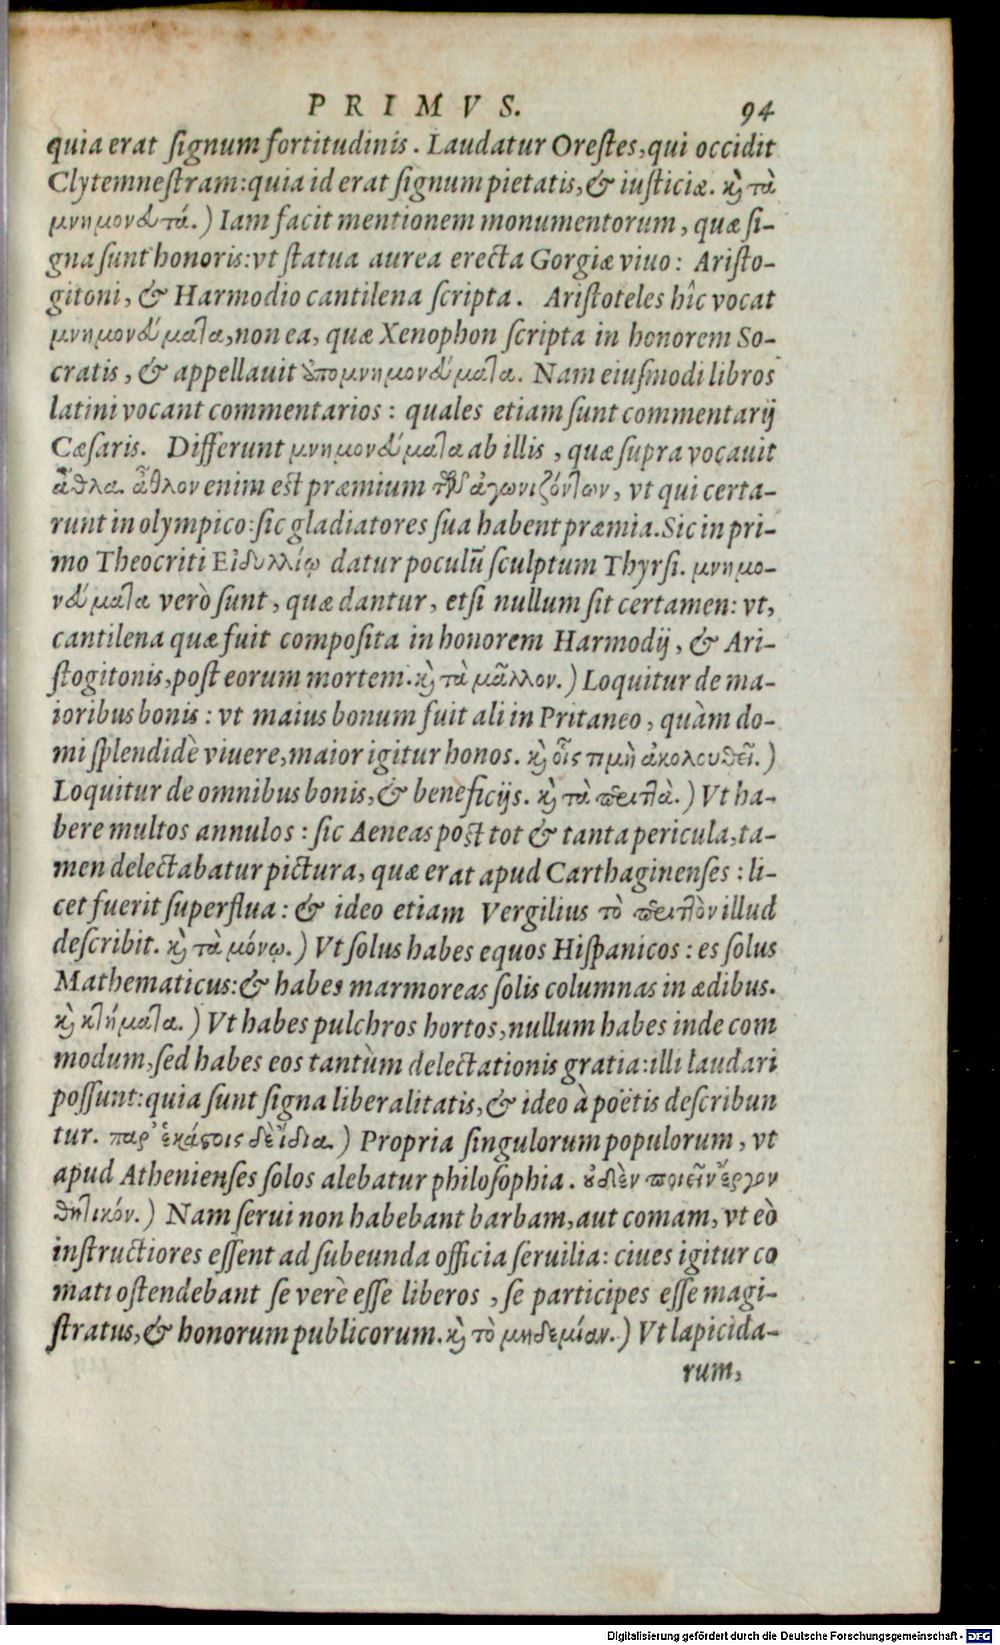 PRIMVS. 94
quia erat signum fortitudinis. Laudatur Orestes, qui occidit
Clytemnestram: quia id erat signum pietatis, & iusticiæ. ϗ τὰ
μνημονευτά.) Iam facit mentionem monumentorum, quæ si-
gna sunt honoris: vt statua aurea erecta Gorgiæ viuo: Aristo-
gitoni, & Harmodio cantilena scripta. Aristoteles hîc vocat
μνημονεύματα, non ea, quæ Xenophon scripta in honorem So-
cratis, & appellauit ὑπομνημονεύματα. Nam eiusmodi libros
latini vocant commentarios: quales etiam sunt commentarij
Cæsaris. Differunt μνημονεύματα ab illis, quæ supra vocauit
ἆθλα. ἆθλον enim est præmium τῶν ἀγωνιζόντων, vt qui certa-
runt in olympico: sic gladiatores sua habent præmia. Sic in pri-
mo Theocriti Εἰδυλλίῳ datur poculũ sculptum Thyrsi. μνημο-
νεύματα verò sunt, quæ dantur, etsi nullum sit certamen: vt,
cantilena quæ fuit composita in honorem Harmodij, & Ari-
stogitonis, post eorum mortem. ϗ τὰ μᾶλλον.) Loquitur de ma-
ioribus bonis: vt maius bonum fuit ali in Pritaneo, quàm do-
mi splendidè viuere, maior igitur honos. ϗ οἷς τιμὴ ἀκολουθεῖ.)
Loquitur de omnibus bonis, & beneficijs. ϗ τὰ περιττὰ.) Vt ha-
bere multos annulos: sic Aeneas post tot & tanta pericula, ta-
men delectabatur pictura, quæ erat apud Carthaginenses: li-
cet fuerit superflua: & ideo etiam Vergilius τὸ περιττὸν illud
describit. ϗ τὰ μόνῳ.) Vt solus habes equos Hispanicos: es solus
Mathematicus: & habes marmoreas solis columnas in ædibus.
ϗ κτήματα.) Vt habes pulchros hortos, nullum habes inde com
modum, sed habes eos tantùm delectationis gratia: illi laudari
possunt: quia sunt signa liberalitatis, & ideo à poëtis describun
tur. παρ' ἑκάστοις δὲ ἴδια.) Propria singulorum populorum, vt
apud Athenienses solos alebatur philosophia. οὐδὲν ποιεῖν ἔργον
θητικόν.) Nam serui non habebant barbam, aut comam, vt eò
instructiores essent ad subeunda officia seruilia: ciues igitur co
mati ostendebant se verè esse liberos, se participes esse magi-
stratus, & honorum publicorum. ϗ τὸ μηδεμίαν.) Vt lapicida-
rum,
Digitalisierung gefördert durch die Deutsche Forschungsgemeinschaft - DFG